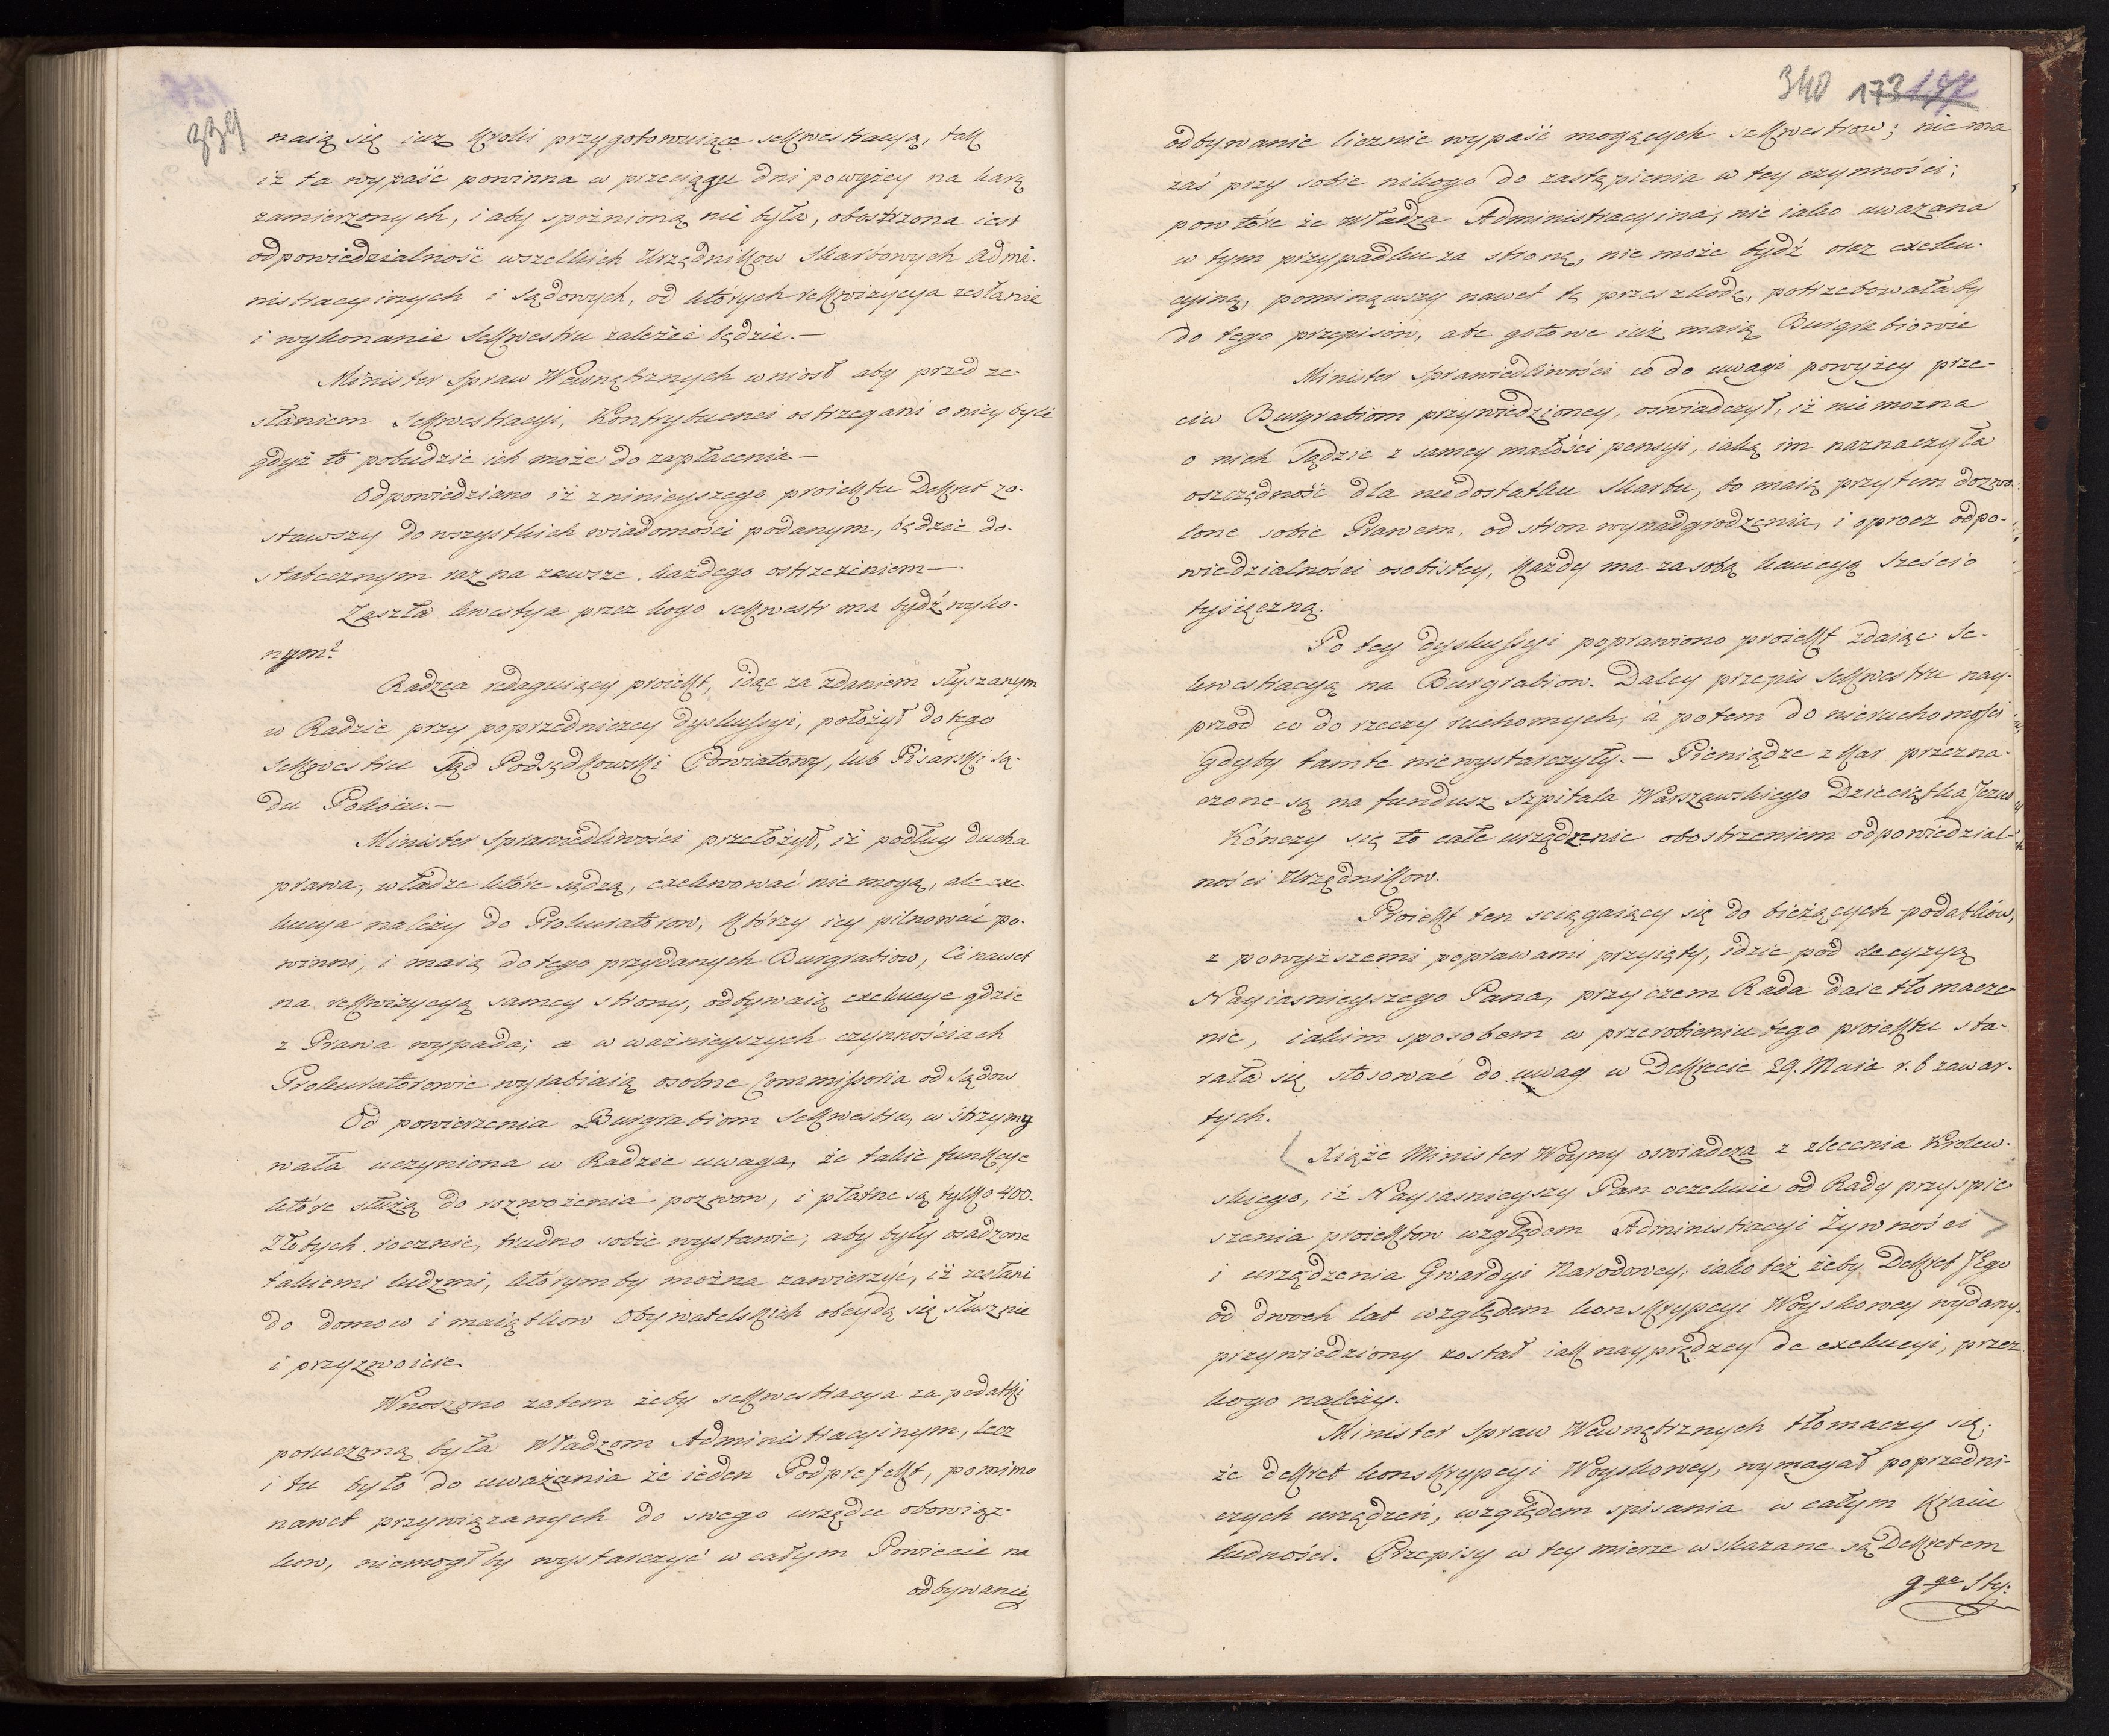 339
naią się iuż kroki przygotowuiące sekwestracyą, tak
iż ta wypaść powinna w przeciągu dni powyżey na karę
zamierzonych, i aby spóźnioną nie była, obostrzona iest
odpowiedzialność wszelkich Urzędnikow Skarbowych Admi-
nistracyinych i Sądowych, od których rekwizycya zesłanie
i wykonanie Sekwestru zależeć będzie.—
Minister Spraw Wewnętrznych wniosł aby przed ze-
słaniem Sekwestracyi, Kontrybuenci ostrzegani o niey byli
gdyż to pobudzić ich może do zapłacenia—
Odpowiedziano iż z ninieyszego proiektu Dekret zo-
stawszy do wszystkich wiadomości podanym, będzie do-
statecznym raz na zawsze każdego ostrzeżeniem—.
Zaszła kwestya przez kogo sekwestr ma bydź wyko-
nym?
Radzca redaguiący proiekt, idąc za zdaniem słyszanym
w Radzie przy poprzedniczey dyskussyi, położył do tego
sekwestru Sąd Podsędkowski Powiatowy, lub Pisarski Są-
du Pokoiu.—
Minister Sprawiedliwości przełożył, iż podług ducha
prawa, władze które sądzą, exekwować nie mogą, ale exe-
kucya należy do Prokuratorow, którzy iey pilnować po-
winni, i maią do tego przydanych Burgrabiow, Ci nawet
na rekwizycyą samey strony, odbywaią exekucye gdzie
z Prawa wypada; a w ważnieyszych czynnościach
Prokuratorowie wyrabiaią osobne Commissoria od Sądow
Od powierzenia Burgrabiom Sekwestru, wstrzymy
wała uczyniona w Radzie uwaga, że takie funkcye
które służą do rozwożenia pozwow, i płatne są tylko 400.
Złotych rocznie, trudno sobie wystawić, aby były osadzone
takiemi ludzmi, którymby można zawierzyć, iż zesłani
do domow i maiątkow Obywatelskich obeydą się słusznie
i przyzwoicie.
Wnoszono zatem żeby sekwestracya za podatki
poruczoną była Władzom Administracyinym, lecz
i tu było do uważania że ieden Podprefekt, pomimo
nawet przywiązanych do swego urzędu obowiąz-
kow, niemogłby wystarczyć w całym Powiecie na
odbywanie
340 173 197
odbywanie licznie wypaść mogących sekwestrow; nie ma
zaś przy sobie nikogo do zastąpienia w tey czynności;
powtóre że Władza Administracyina, nie iako uważana
w tym przypadku za stroną, nie może bydź oraz exeku-
cyiną, pominąwszy nawet tę przeszkodę, potrzebowałaby
do tego przepisow, ale gotowe iuż maią Burgrabiowie
Minister Sprawiedliwości co do uwagi powyżey prze-
ciw Burgrabiom przywiedzioney, oświadczył, iż nie można
o nich Sądzić z samey małości pensyi, iaką im naznaczyła
oszczędność dla niedostatku Skarbu, bo maią przytem dozwo-
lone sobie Prawem, od stron wynadgrodzenia, i oprocz odpo-
wiedzialności osobistey, każdy ma za sobą kaucyą sześcio
tysiączną.
Po tey dyskussyi poprawiono proiekt zdaiąc Se-
kwestracyą na Burgrabiow. Daley przepis Sekwestru nay-
przod co do rzeczy ruchomych, à potem do nieruchomości
gdyby tamte niewystarczyły.— Pieniądze z kar przezna-
czone są na fundusz Szpitala Warszawskiego Dzieciątka Jezus
Kończy się to całe urządzenie obostrzeniem odpowiedzial-
ności Urzędnikow.
Proiekt ten sciągaiący się do bieżących podatków,
z powyższemi poprawami przyięty, idzie pod decyzyą
Nayiasnieyszego Pana, przyczem Rada daie tłomacze-
nie, iakim sposobem w przerobieniu tego proiektu sta-
rała się stosować do uwag w Dekrecie 29. Maia r. b zawar-
tych.
Xiąże Minister Woyny oswiadcza z zlecenia Krolew-
skiego, iż Nayiasnieyszy Pan oczekuie od Rady przyspie
szenia proiektow względem Administracyi Żywności
i urządzenia Gwardyi Narodowey; iako też żeby Dekret JEgo
od dwoch lat względem konskrypcyi Woyskowey wydany,
przywiedziony został iak nayprędzey do exekucyi, przez
kogo należy.
Minister Spraw Wewnętrznych tłomaczy się,
że dekret konskrypcyi Woyskowey, wymagał poprzedni-
czych urządzeń, względem spisania w całym Kraiu
ludności. Przepisy w tey mierze wskazane są Dekretem
9go Sty: